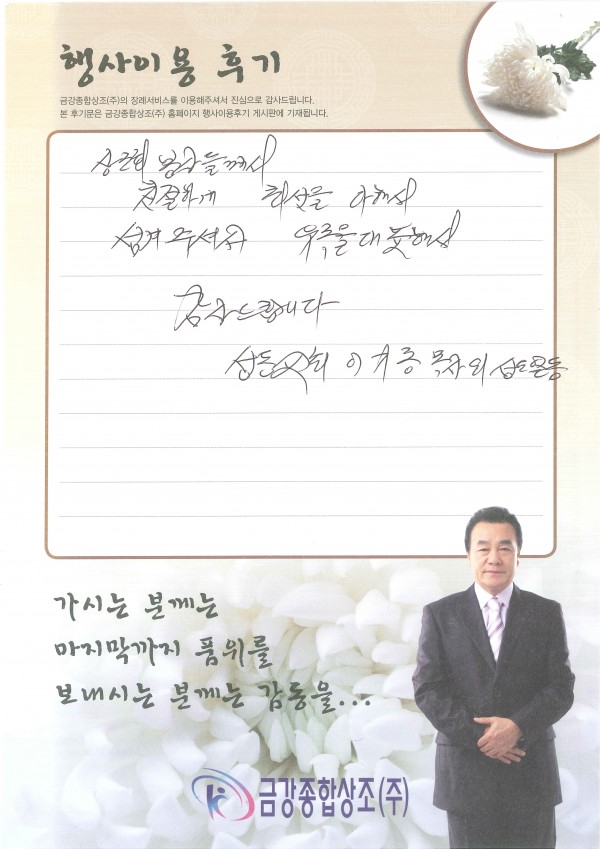 행사이용 후기
금강종합상조(주)의 장례서비스를 이용해주셔서 진심으로 감사드립니다.
본 후기문은 금강종합상조(주) 홈페이지 행사이용후기 게시판에 기재됩니다.
친절하게 최선을 다해서
섬겨 주셔서 유족을 대표해서
감사드립니다
이 목사 외 성도일동
가시는 분께는
마지막까지 품위를
보내시는 분께는 감동을...
금강종합상조(주)